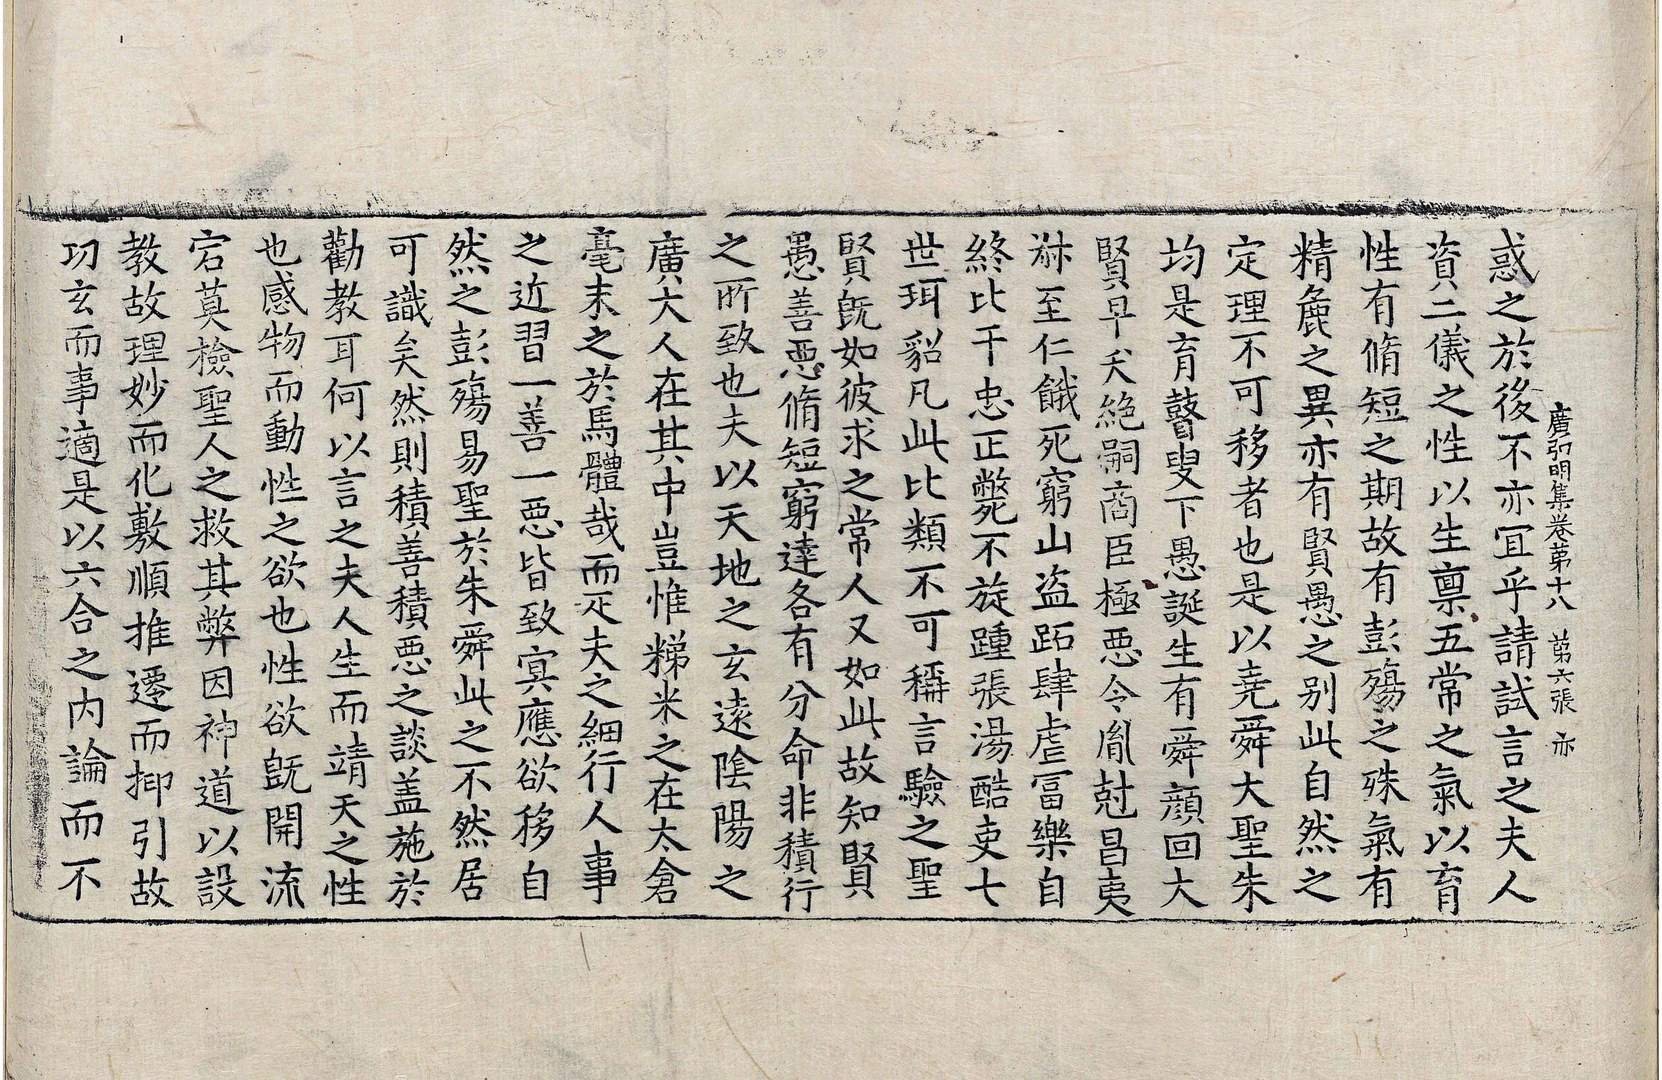 廣弘明集卷第十八　第六張　亦
惑之於後不亦宜乎請試言之夫人
資二儀之性以生禀五常之氣以育
性有脩短之期故有彭殤之殊氣有
精麁之異亦有賢愚之别此自然之
定理不可移者也是以堯舜大聖朱
均是育瞽叟下愚誕生有舜顔回大
賢早夭絶嗣商臣極惡令胤尅昌夷
叔至仁餓死窮山盗跖肆虐冨樂自
終比干忠正斃死不旋踵張湯酷吏七
世珥貂凡此比類不可稱言驗之聖
賢旣如彼求之常人又如此故知賢
愚善惡脩短窮達各有分命非積行
之所致也夫以天地之玄遠陰陽之
廣大人在其中豈惟稊米之在太倉
毫末之於馬體哉而疋夫之細行人事
之近習一善一惡皆致冥應欲移自
然之彭殤易聖於朱舜此之不然居
可識矣然則積善積惡之談盖施於
勸教耳何以言之夫人生而靖天之性
也感物而動性之欲也性欲旣開流
宕莫檢聖人之救其弊因神道以設
教故理妙而化敷順推遷而抑引故
功玄而事適是以六合之内論而不